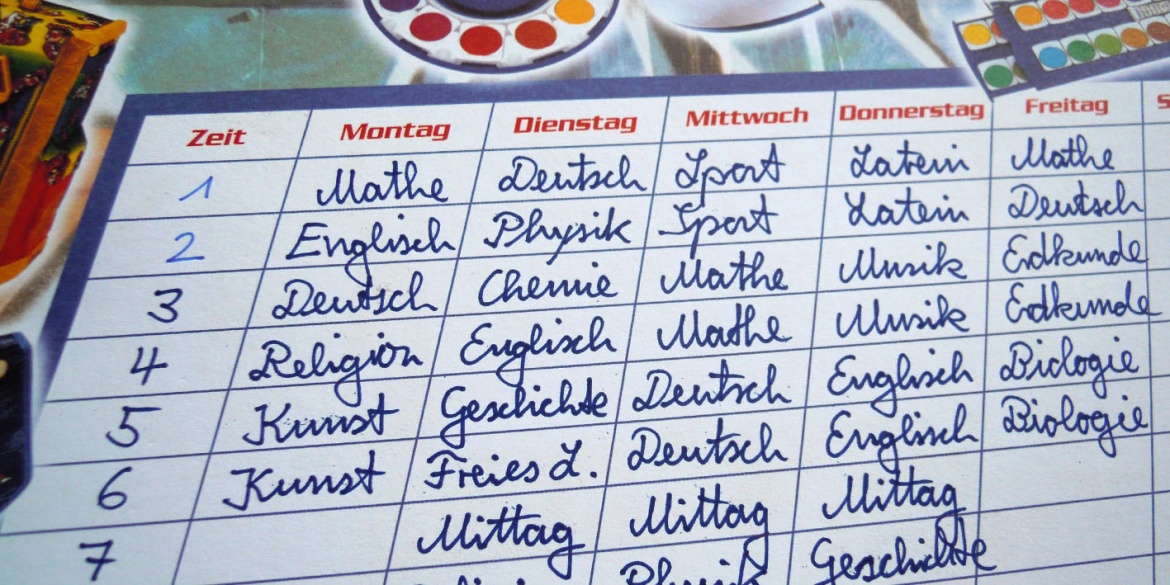 Zeit Montag Dienstag Mittwoch Donnerstag Freitag
1 Mathe Deutsch Sport Latein Mathe
2 Englisch Physik Sport Latein Deutsch
3 Deutsch Chemie Mathe Musik Erdkunde
4 Religion Englisch Mathe Musik Erdkunde
5 Kunst Geschichte Deutsch Englisch Biologie
6 Kunst Freies L. Deutsch Englisch Biologie
7 Mittag Mittag Mittag
Physik Geschichte